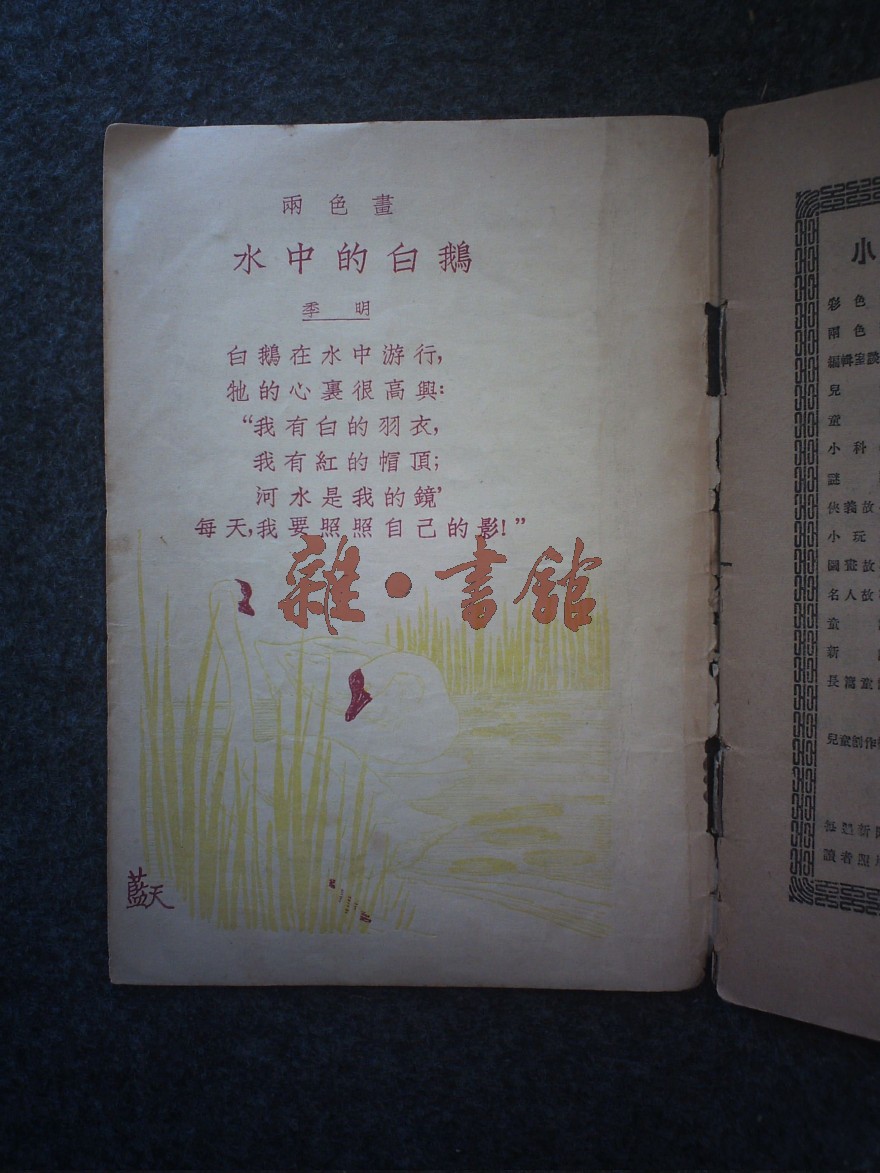 兩色畫
水中的白鵝
季明
白鵝在水中游行,
牠的心裏很高興:
“我有白的羽衣,
我有紅的帽頂;
河水是我的鏡’
每天,我要照照自己的影!”
雜·書館
藍天
小
彩色
兩色
編輯室談
兒
童
小科
謎
俠義故
小玩
圖畫故
名人故
童
新
長篇童
兒童創作
每週新
讀者照